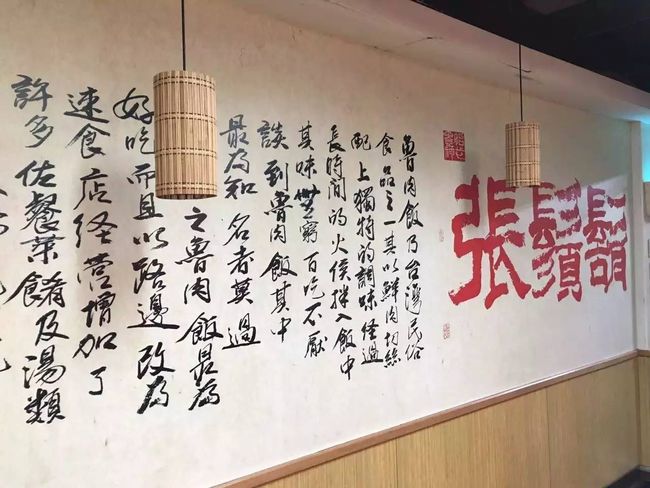 鬍鬚張
魯肉飯乃台灣民俗
食品之一其以鮮肉切絲
配上獨特的調味經過
長時間的火侯拌入飯中
其味無窮百吃不厭
談到魯肉飯其中
最為知名者莫過
之魯肉飯最為
好吃而且以路邊改為
速食店経營增加了
許多佐餐菜餚及湯類